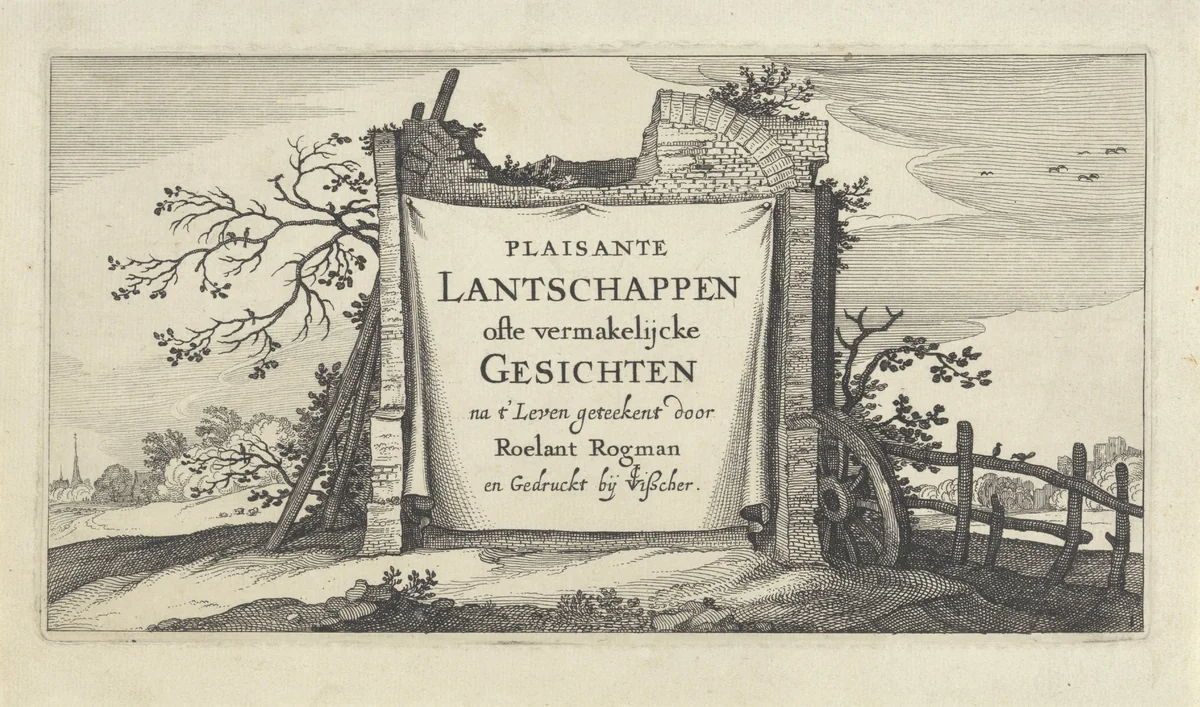 PLAISANTE
LANTSCHAPPEN
ofte vermakelijcke
GESICHTEN
na t'Leven geteekent door
Roelant Rogman
en Gedruckt bij Vißcher.
1